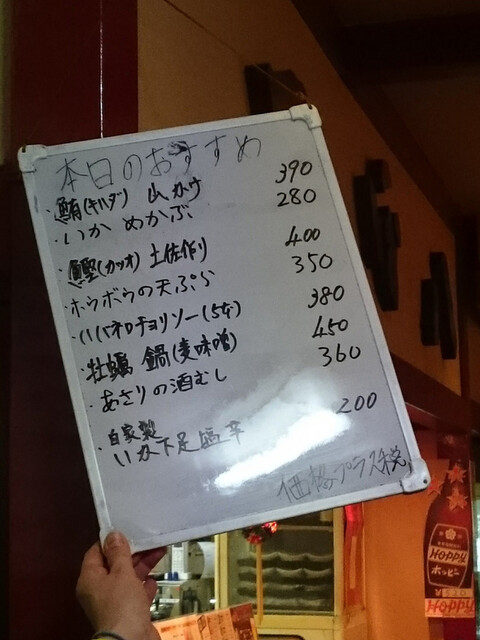 本日のおすすめ
・鮪(キハダ) 山かけ 390
・いかめかぶ 280
・鰹(カツオ) 土佐作り 400
・ホウボウの天ぷら 350
・ハバネロチョリソー(5本) 380
・牡蠣 鍋(麦味噌) 450
・あさりの酒むし 360
・自家製
いか下足塩辛 200
価格プラス税
Hoppy
ホッピー
HOPPY